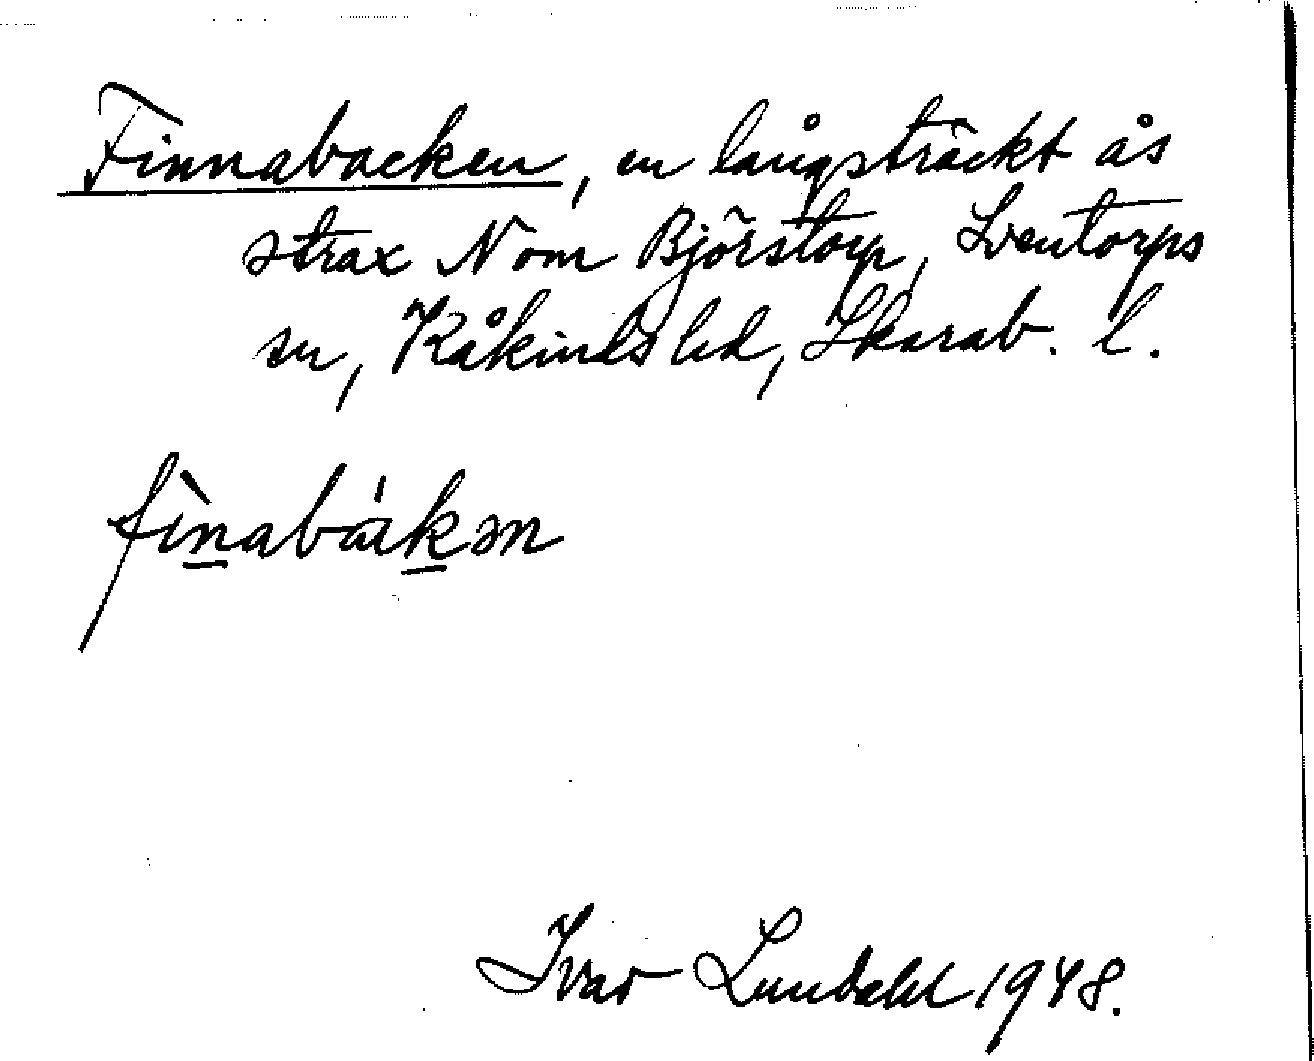 Finnabacken, en långsträckt ås
strax N om Björstorp, Lerentorps
sn, Kåkinds hd, Skarab. l.
fìnabákən
Ivar Lundahl 1948.